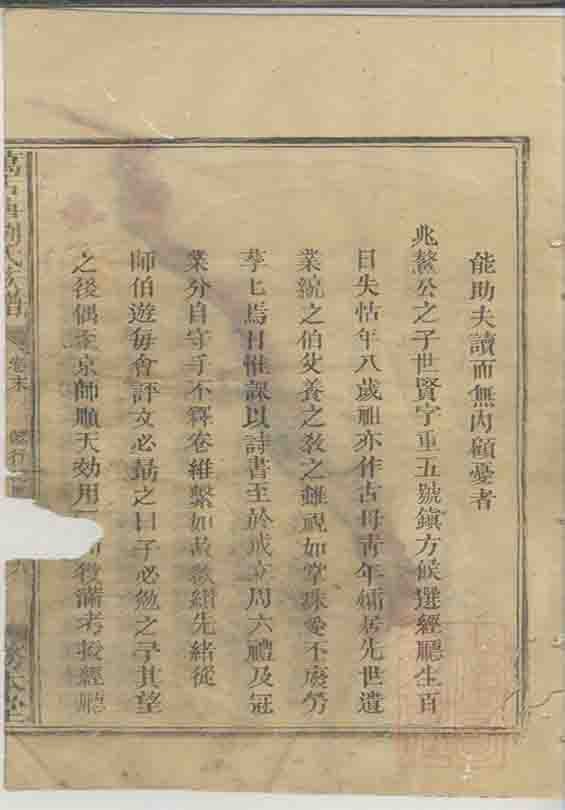 能助夫讀而無內顧憂者
兆鰲公之子世賢字重五號鎮方候選經廳生百
日失怙年八歲祖亦作古母青年孀居先世遺
業統之伯父養之教之雖視如掌珠愛不廢勞
孳七焉日惟課以詩書至於成立周六禮及冠
業分自守手不釋卷維繫如故欵續先緒從
師伯遊每會評文必勗之曰子必勉之孚其望
之後偶至京師順天効用 役滿考授經廳
劉氏 譜 卷末 本堂